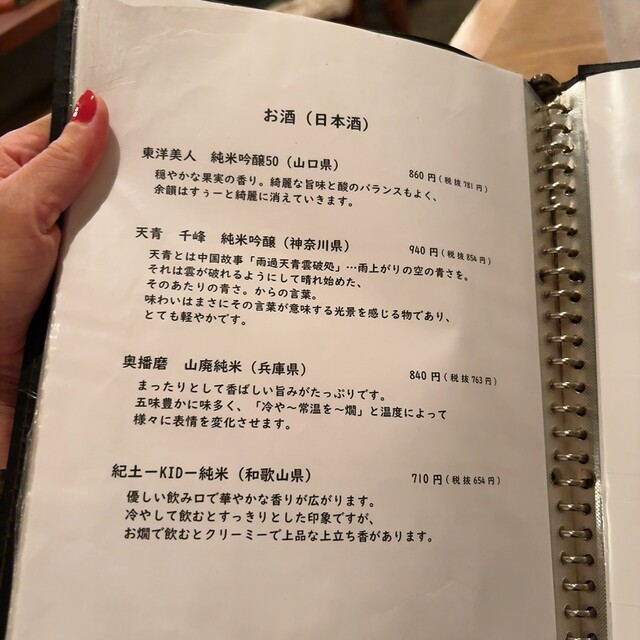 お酒（日本酒）
東洋美人　純米吟醸50（山口県）　860円（税抜781円）
穏やかな果実の香り。綺麗な旨味と酸のバランスもよく、
余韻はすぅーと綺麗に消えていきます。
天青　千峰　純米吟醸（神奈川県）　940円（税抜854円）
天青とは中国故事「雨過天青雲破処」…雨上がりの空の青さを。
それは雲が破れるようにして晴れ始めた、
そのあたりの青さ。からの言葉。
味わいはまさにその言葉が意味する光景を感じる物であり、
とても軽やかです。
奥播磨　山廃純米（兵庫県）　840円（税抜763円）
まったりとして香ばしい旨みがたっぷりです。
五味豊かに味多く、「冷や〜常温を〜燗」と温度によって
様々に表情を変化させます。
紀土ーKIDー純米（和歌山県）　710円（税抜654円）
優しい飲み口で華やかな香りが広がります。
冷やして飲むとすっきりとした印象ですが、
お燗で飲むとクリーミーで上品な上立ち香があります。